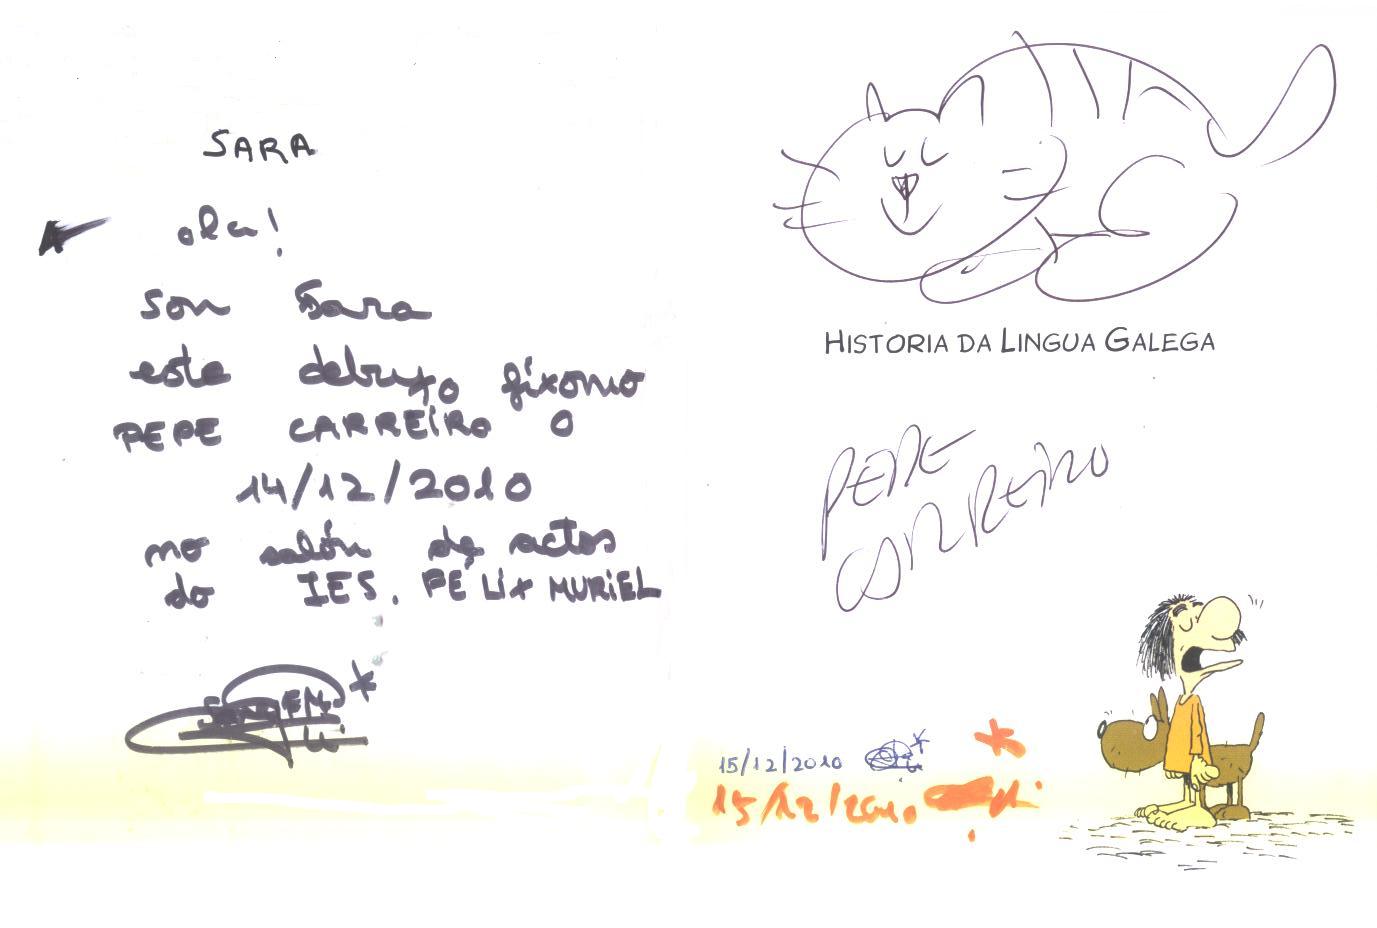 SARA
ola!
son Sara
este debuxo fíxomo
PEPE CARREIRO O
14/12/2010
no salón de actos
do IES. FÉLIX MURIEL
HISTORIA DA LINGUA GALEGA
PEPE
CARREIRO
15/12/2010
15/12/2010